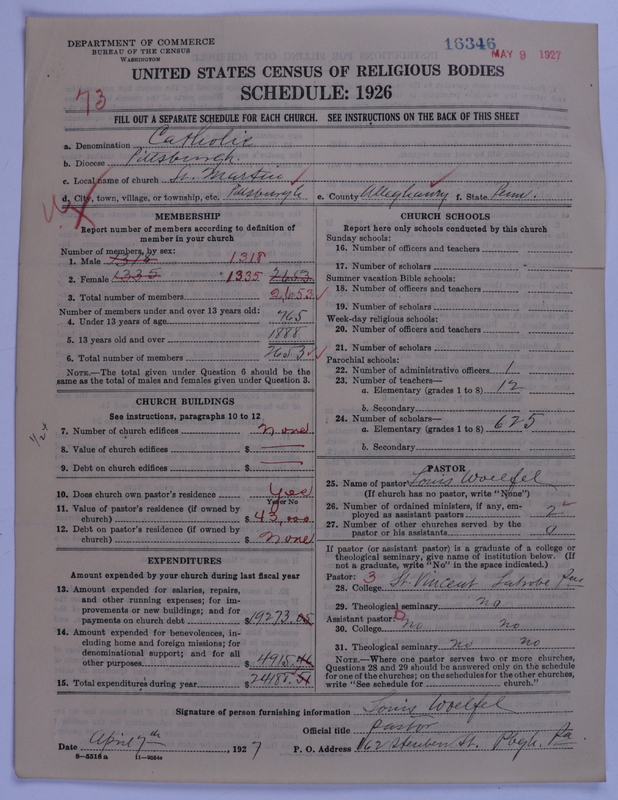 DEPARTMENT OF COMMERCE
BUREAU OF THE CENSUS
WASHINGTON
16346
MAY 9 1927
UNITED STATES CENSUS OF RELIGIOUS BODIES
SCHEDULE: 1926
73
FILL OUT A SEPARATE SCHEDULE FOR EACH CHURCH. SEE INSTRUCTIONS ON THE BACK OF THIS SHEET
a. Denomination Catholic
b. Diocese Pittsburgh.
c. Local name of church St. Martin
d. City, town, village, or township, etc. Pittsburgh e. County Alleghany f. State Penn.
MEMBERSHIP
Report number of members according to definition of
member in your church
Number of members, by sex:
1. Male 1318 1318
2. Female 1335 1335 2653
3. Total number of members 2,653
Number of members under and over 13 years old:
4. Under 13 years of age 765
5. 13 years old and over 1888
6. Total number of members 2653
NOTE.—The total given under Question 6 should be the
same as the total of males and females given under Question 3.
CHURCH BUILDINGS
See instructions, paragraphs 10 to 12
7. Number of church edifices none
8. Value of church edifices $
9. Debt on church edifices $
10. Does church own pastor's residence Yes
Yes or No
11. Value of pastor's residence (if owned by
church) $ 43,000
12. Debt on pastor's residence (if owned by
church) $ None
EXPENDITURES
Amount expended by your church during last fiscal year
13. Amount expended for salaries, repairs,
and other running expenses; for im-
provements or new buildings; and for
payments on church debt $19273.05
14. Amount expended for benevolences, in-
cluding home and foreign missions; for
denominational support; and for all
other purposes $4915.46
15. Total expenditures during year $24188.51
CHURCH SCHOOLS
Report here only schools conducted by this church
Sunday schools:
16. Number of officers and teachers
17. Number of scholars
Summer vacation Bible schools:
18. Number of officers and teachers
19. Number of scholars
Week-day religious schools:
20. Number of officers and teachers
21. Number of scholars
Parochial schools:
22. Number of administrative officers 1
23. Number of teachers—
a. Elementary (grades 1 to 8) 12
b. Secondary
24. Number of scholars—
a. Elementary (grades 1 to 8) 625
b. Secondary
PASTOR
25. Name of pastor Louis Woelfel
(If church has no pastor, write "None")
26. Number of ordained ministers, if any, em-
ployed as assistant pastors 2
27. Number of other churches served by the
pastor or his assistants 0
If pastor (or assistant pastor) is a graduate of a college or
theological seminary, give name of institution below. (If
not a graduate, write "No" in the space indicated.)
Pastor: 3
28. College St. Vincent Latrobe Pa
29. Theological seminary no
Assistant pastor: 0
30. College no no
31. Theological seminary no no
NOTE.—Where one pastor serves two or more churches,
Questions 28 and 29 should be answered only on the schedule
for one of the churches; on the schedules for the other churches,
write "See schedule for church."
Signature of person furnishing information Louis Woelfel
Official title Pastor
Date April 7th, 1927 P. O. Address 1162 Steuben St. Pbgh. Pa
8—5518 a